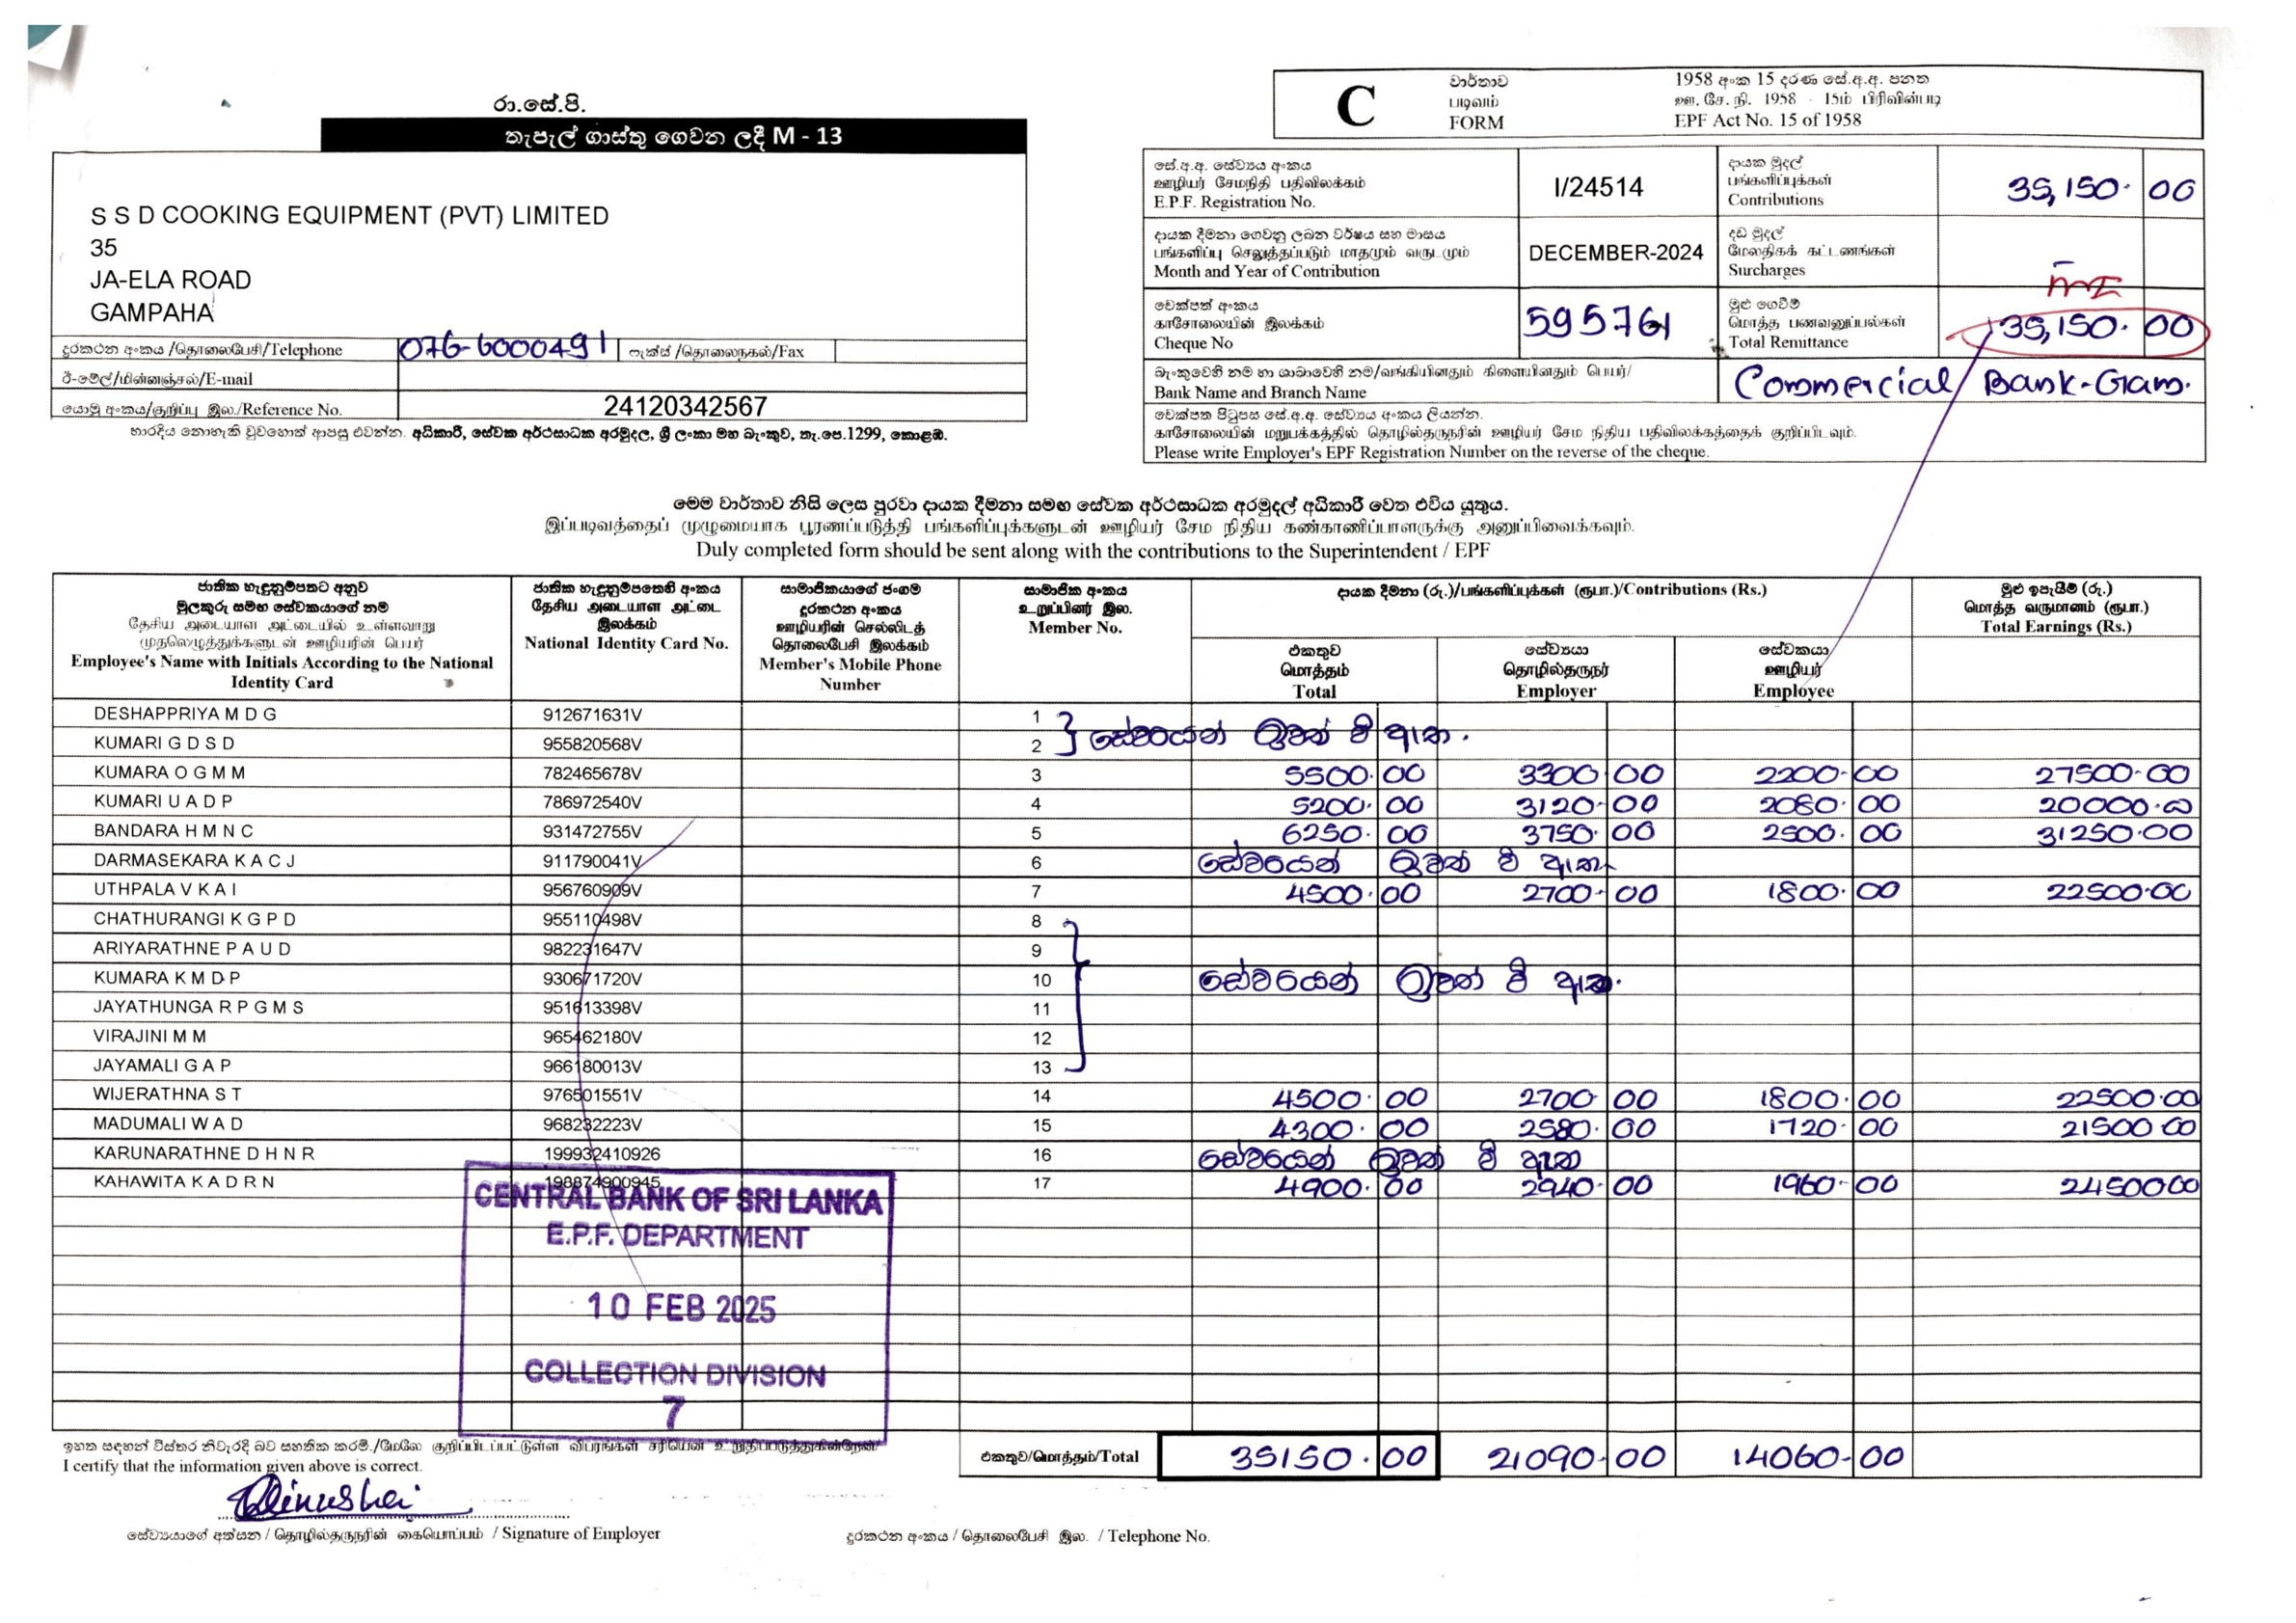 රා.සේ.පි.
තැපැල් ගාස්තු ගෙවන ලදී M - 13
S S D COOKING EQUIPMENT (PVT) LIMITED
35
JA-ELA ROAD
GAMPAHA
දුරකථන අංකය /தொலைபேசி/Telephone 076-6000491 ෆැක්ස් /தொலைநகல்/Fax
ඊ-මේල්/மின்னஞ்சல்/E-mail
යොමු අංකය/குறிப்பு இல./Reference No. 24120342567
භාරදිය නොහැකි වුවහොත් ආපසු එවන්න. අධිකාරී, සේවක අර්ථසාධක අරමුදල, ශ්‍රී ලංකා මහ බැංකුව, තැ.පෙ.1299, කොළඹ.
C
වාර්තාව
படிவம்
FORM
1958 අංක 15 දරණ සේ.අ.අ. පනත
ஊ. சே. நி. 1958 - 15ம் பிரிவின்படி
EPF Act No. 15 of 1958
සේ.අ.අ. සේව්‍යය අංකය
ஊழியர் சேமநிதி பதிவிலக்கம்
E.P.F. Registration No.
I/24514
දායක මුදල්
பங்களிப்புக்கள்
Contributions
35,150. 00
දායක දීමනා ගෙවනු ලබන වර්ෂය සහ මාසය
பங்களிப்பு செலுத்தப்படும் மாதமும் வருடமும்
Month and Year of Contribution
DECEMBER-2024
දඩ මුදල්
மேலதிகக் கட்டணங்கள்
Surcharges
-
චෙක්පත් අංකය
காசோலையின் இலக்கம்
Cheque No
595761
මුළු ගෙවීම්
மொத்த பணவனுப்பல்கள்
Total Remittance
35,150. 00
බැංකුවෙහි නම හා ශාඛාවෙහි නම/வங்கியினதும் கிளையினதும் பெயர்/
Bank Name and Branch Name
Commercial Bank-Gam.
චෙක්පත පිටුපස සේ.අ.අ. සේව්‍යය අංකය ලියන්න.
காசோலையின் மறுபக்கத்தில் தொழில்தருநரின் ஊழியர் சேம நிதிய பதிவிலக்கத்தைக் குறிப்பிடவும்.
Please write Employer's EPF Registration Number on the reverse of the cheque.
මෙම වාර්තාව නිසි ලෙස පුරවා දායක දීමනා සමඟ සේවක අර්ථසාධක අරමුදල් අධිකාරී වෙත එවිය යුතුය.
இப்படிவத்தைப் முழுமையாக பூரணப்படுத்தி பங்களிப்புக்களுடன் ஊழியர் சேம நிதிய கண்காணிப்பாளருக்கு அனுப்பிவைக்கவும்.
Duly completed form should be sent along with the contributions to the Superintendent / EPF
ජාතික හැඳුනුම්පතට අනුව
මුලකුරු සමඟ සේවකයාගේ නම
தேசிய அடையாள அட்டையில் உள்ளவாறு
முதலெழுத்துக்களுடன் ஊழியரின் பெயர்
Employee's Name with Initials According to the National
Identity Card
ජාතික හැඳුනුම්පතෙහි අංකය
தேசிய அடையாள அட்டை
இலக்கம்
National Identity Card No.
සාමාජිකයාගේ ජංගම
දුරකථන අංකය
ஊழியரின் செல்லிடத்
தொலைபேசி இலக்கம்
Member's Mobile Phone
Number
සාමාජික අංකය
உறுப்பினர் இல.
Member No.
දායක දීමනා (රු.)/பங்களிப்புக்கள் (ரூபா.)/Contributions (Rs.)
එකතුව
மொத்தம்
Total
සේව්‍යයා
தொழில்தருநர்
Employer
සේවකයා
ஊழியர்
Employee
මුළු ඉපැයීම් (රු.)
மொத்த வருமானம் (ரூபா.)
Total Earnings (Rs.)
DESHAPPRIYA M D G 912671631V 1
KUMARI G D S D 955820568V 2 සේවයෙන් ඉවත් වී ඇත.
KUMARA O G M M 782465678V 3 5500.00 3300 00 2200.00 27500.00
KUMARI U A D P 786972540V 4 5200.00 3120.00 2080.00 20000.00
BANDARA H M N C 931472755V 5 6250.00 3750.00 2500.00 31250.00
DARMASEKARA K A C J 911790041V 6 සේවයෙන් ඉවත් වී ඇත
UTHPALA V K A I 956760909V 7 4500.00 2700.00 1800.00 22500.00
CHATHURANGI K G P D 955110498V 8
ARIYARATHNE P A U D 982231647V 9
KUMARA K M D P 930671720V 10 සේවයෙන් ඉවත් වී ඇත.
JAYATHUNGA R P G M S 951613398V 11
VIRAJINI M M 965462180V 12
JAYAMALI G A P 966180013V 13
WIJERATHNA S T 976501551V 14 4500.00 2700.00 1800.00 22500.00
MADUMALI W A D 968232223V 15 4300.00 2580.00 1720.00 21500 00
KARUNARATHNE D H N R 199932410926 16 සේවයෙන් ඉවත් වී ඇත
KAHAWITA K A D R N 198874900945 17 4900.00 2940.00 1960.00 24500 00
CENTRAL BANK OF SRI LANKA
E.P.F. DEPARTMENT
10 FEB 2025
COLLECTION DIVISION
7
ඉහත සඳහන් විස්තර නිවැරදි බව සහතික කරමි./மேலே குறிப்பிடப்பட்டுள்ள விபரங்கள் சரியென உறுதிப்படுத்துகின்றேன்/
I certify that the information given above is correct.
එකතුව/மொத்தம்/Total 35150.00 21090.00 14060.00
සේව්‍යයාගේ අත්සන / தொழில்தருநரின் கையொப்பம் / Signature of Employer
දුරකථන අංකය / தொலைபேசி இல. / Telephone No.